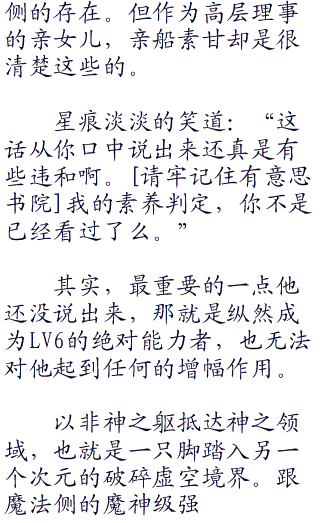 侧的存在。但作为高层理事
的亲女儿，亲船素甘却是很
清楚这些的。
星痕淡淡的笑道：“这
话从你口中说出来还真是有
些违和啊。[请牢记住有意思
书院]我的素养判定，你不是
已经看过了么。”
其实，最重要的一点他
还没说出来，那就是纵然成
为LV6的绝对能力者，也无法
对他起到任何的增幅作用。
以非神之躯抵达神之领
域，也就是一只脚踏入另一
个次元的破碎虚空境界。跟
魔法侧的魔神级强